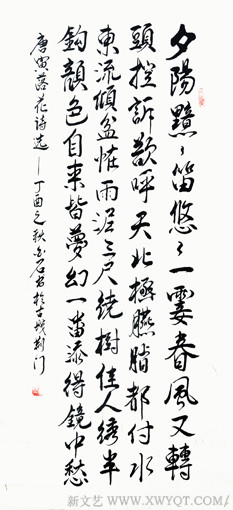 夕陽黯々笛悠々一霎春風又轉
頭控訴欲呼天北極臙脂都付水
東流傾盆怪雨泥三尺繞樹佳人繡半
鈎顔色自来皆夢幻一番添得鏡中愁
唐寅落花诗选一丁酉之秋石君於古槐树门
新文艺 / WWW.XWYQT.COM